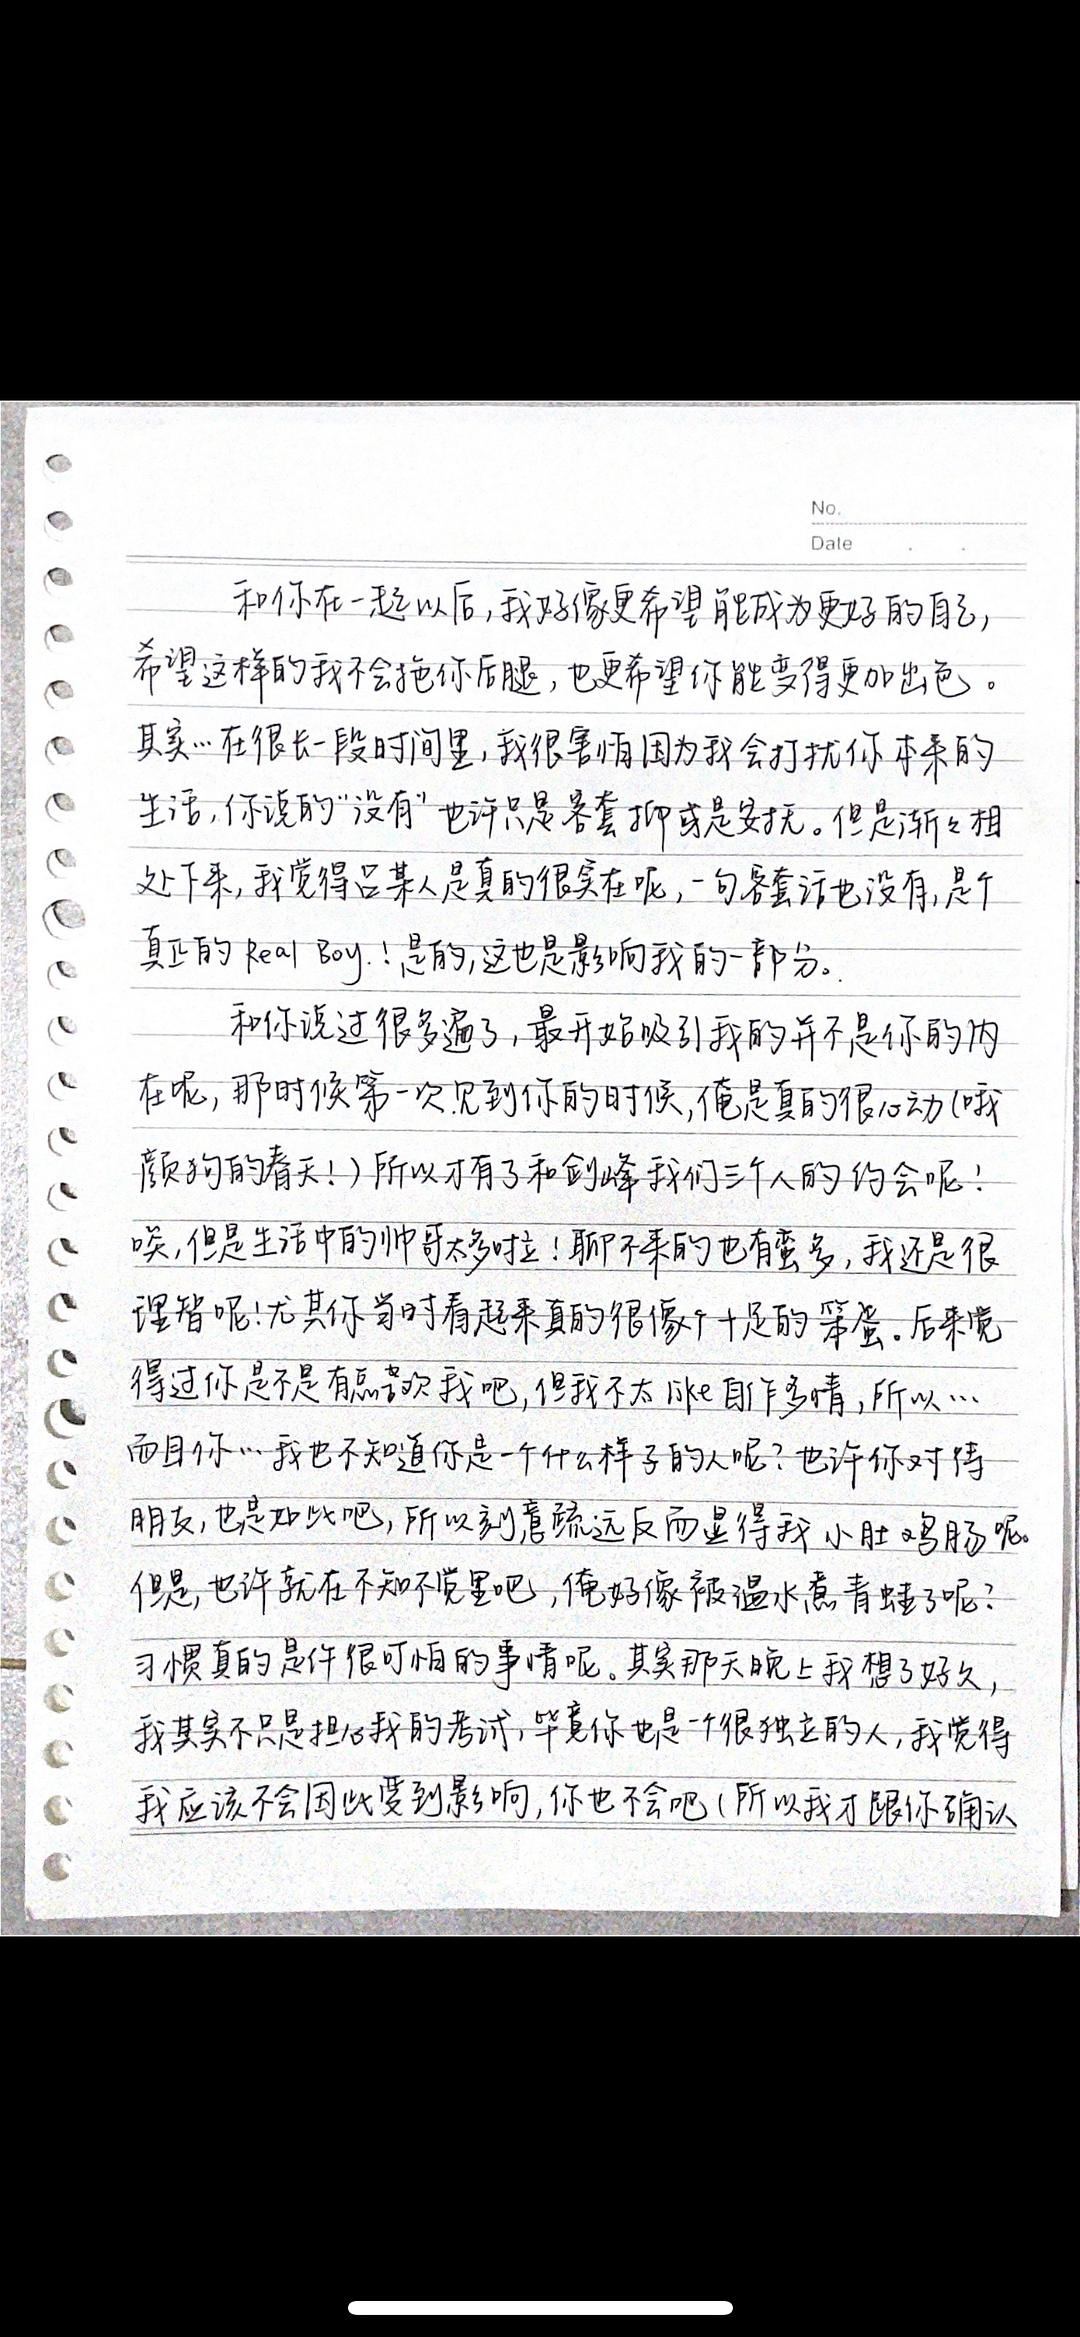 No.
Date
和你在一起以后,我好像更希望能成为更好的自己,
希望这样的我不会拖你后腿,也更希望你能变得更加出色。
其实…在很长一段时间里,我很害怕因为我会打扰你本来的
生活,你说的"没有"也许只是客套抑或是安抚。但是渐々相
处下来,我觉得吕某人是真的很实在呢,一句客套话也没有,是个
真正的Real Boy.!是的,这也是影响我的一部分。
和你说过很多遍了,最开始吸引我的并不是你的内
在呢,那时候第一次见到你的时候,俺是真的很心动(哦
颜狗的春天!)所以才有了和剑峰我们三个人的约会呢!
唉,但是生活中的帅哥太多啦!聊不来的也有蛮多,我还是很
理智呢!尤其你当时看起来真的很像个十足的笨蛋。后来觉
得过你是不是有点喜欢我吧,但我不太like自作多情,所以…
而且你…我也不知道你是一个什么样子的人呢?也许你对待
朋友,也是如此吧,所以刻意疏远反而显得我小肚鸡肠呢。
但是,也许就在不知不觉里吧,俺好像被温水煮青蛙了呢?
习惯真的是件很可怕的事情呢。其实那天晚上我想了好久,
我其实不只是担心我的考试,毕竟你也是一个很独立的人,我觉得
我应该不会因此受到影响,你也不会吧(所以我才跟你确认